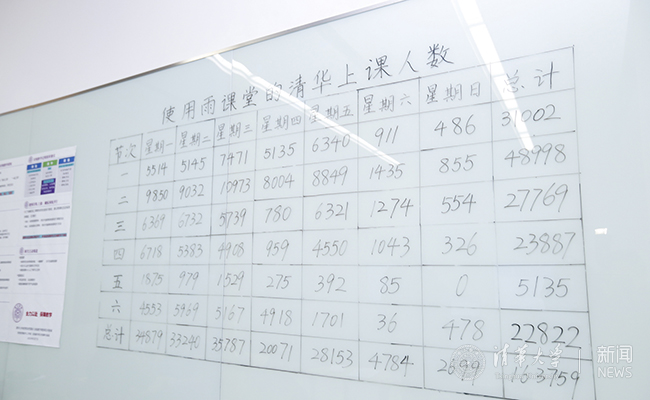 使用雨课堂的清华上课人数
节次 星期一 星期二 星期三 星期四 星期五 星期六 星期日 总计
一 5514 5145 7471 5135 6340 911 486 31002
二 9850 9032 10973 8004 8849 1435 855 48998
三 6369 6732 5739 780 6321 1274 554 27769
四 6718 5383 4908 959 4550 1043 326 23887
五 1875 979 1529 275 392 85 0 5135
六 4553 5969 5167 4918 1701 36 478 22822
总计 34879 33240 35787 20071 28153 4784 2699 163759
清华大学 新闻
NEWS